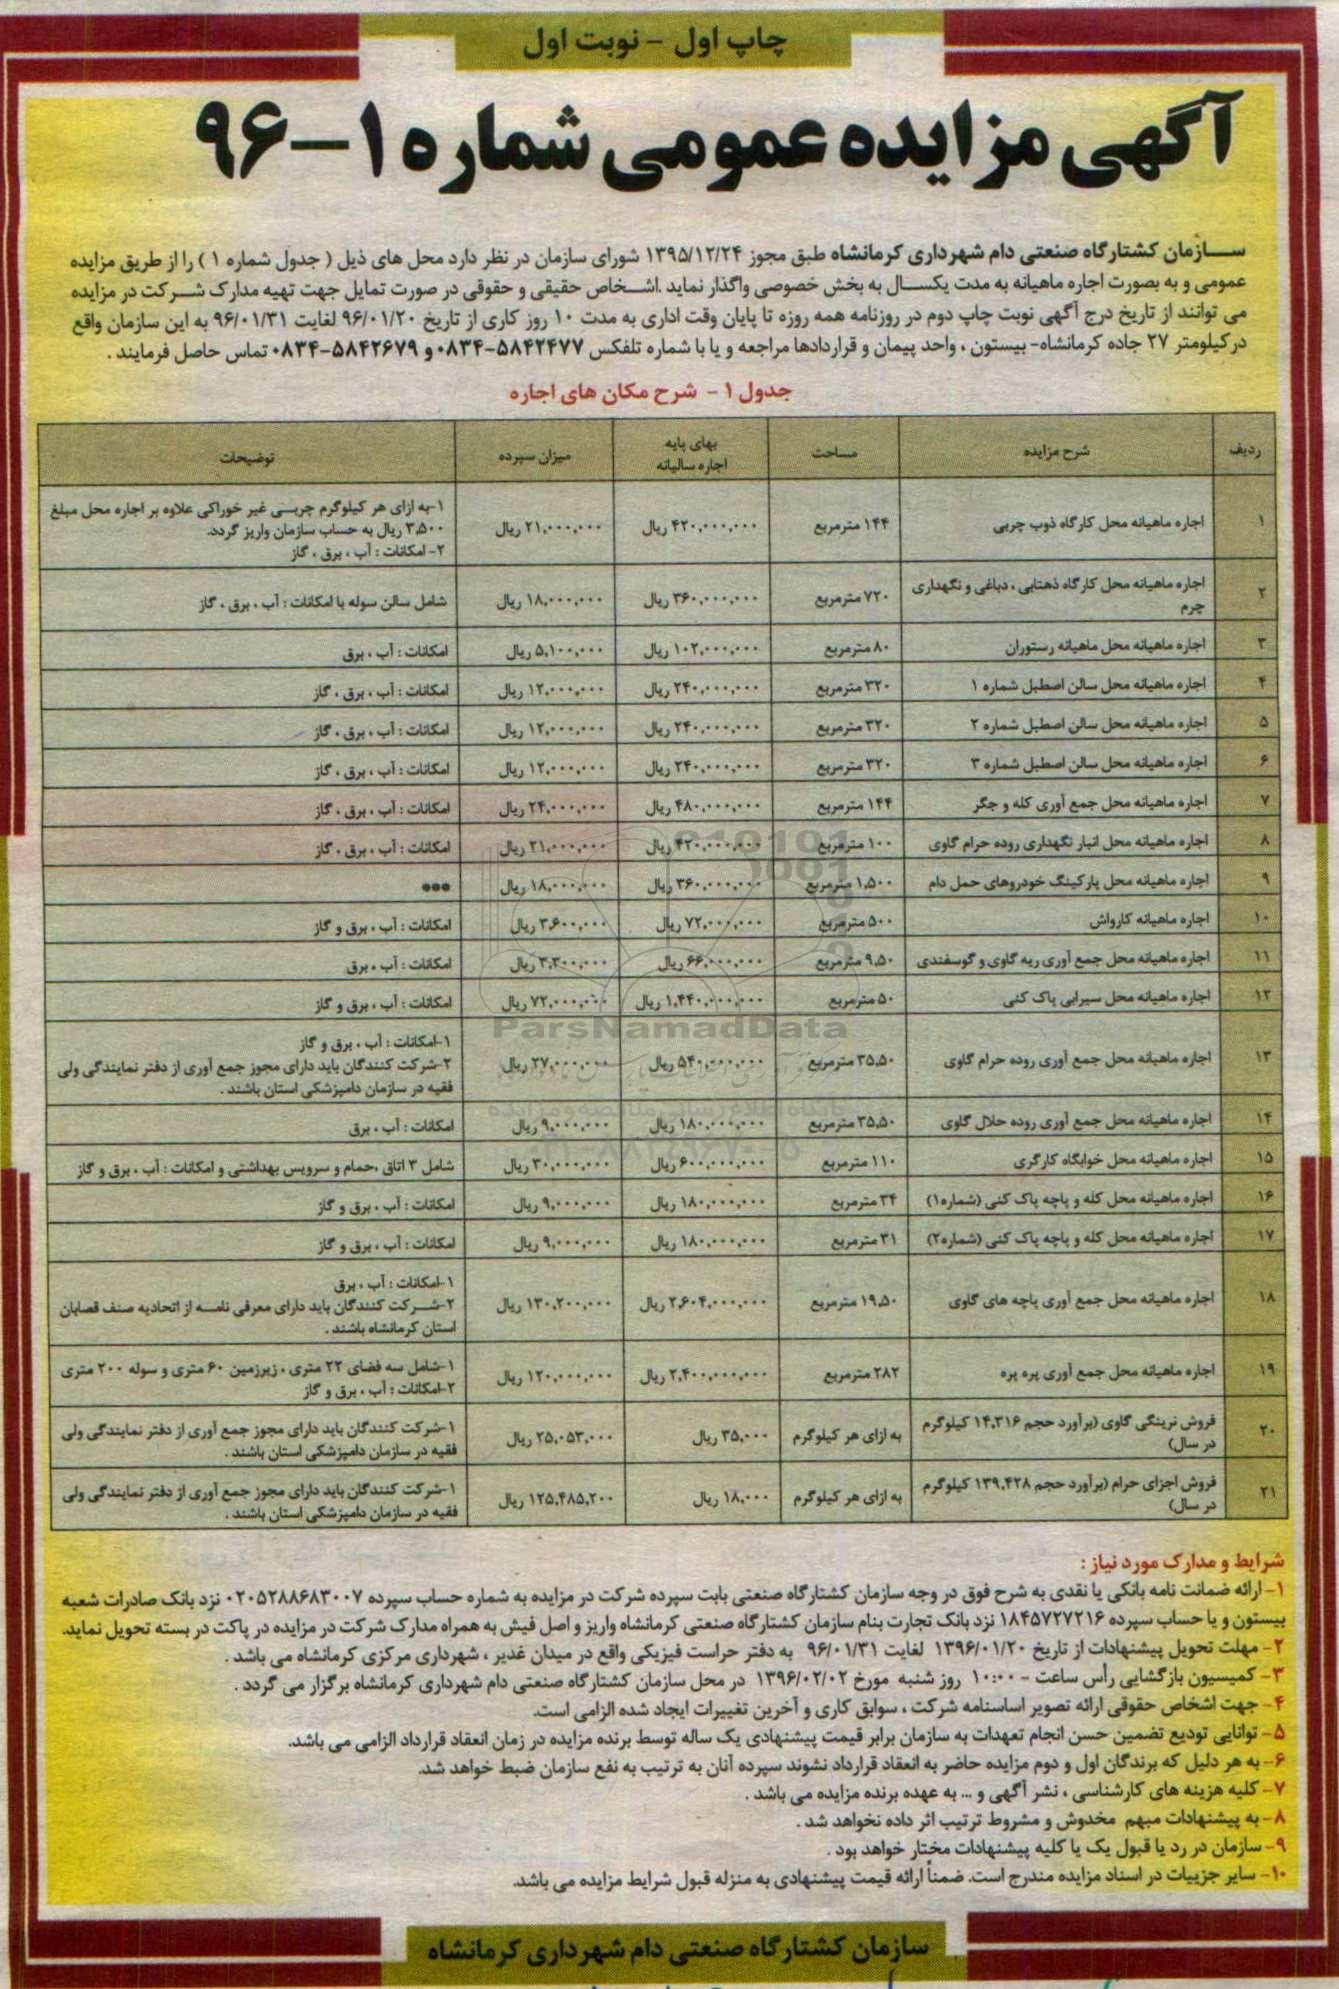 چاپ اول - نوبت اول
آگهی مزایده عمومی شماره ۱-۹۶
سازمان کشتارگاه صنعتی دام شهرداری کرمانشاه طبق مجوز ۱۳۹۵/۱۲/۲۴ شورای سازمان در نظر دارد محل های ذیل ( جدول شماره ۱ ) را از طریق مزایده
عمومی و به بصورت اجاره ماهیانه به مدت یکسال به بخش خصوصی واگذار نماید .اشخاص حقیقی و حقوقی در صورت تمایل جهت تهیه مدارک شرکت در مزایده
می توانند از تاریخ درج آگهی نوبت چاپ دوم در روزنامه همه روزه تا پایان وقت اداری به مدت ۱۰ روز کاری از تاریخ ۹۶/۰۱/۲۰ لغایت ۹۶/۰۱/۳۱ به این سازمان واقع
درکیلومتر ۲۷ جاده کرمانشاه- بیستون ، واحد پیمان و قراردادها مراجعه و یا با شماره تلفکس ۵۸۴۲۴۷۷-۰۸۳۴ و ۵۸۴۲۶۷۹-۰۸۳۴ تماس حاصل فرمایند .
جدول ۱ - شرح مکان های اجاره
ردیف شرح مزایده مساحت بهای پایه اجاره سالیانه میزان سپرده توضیحات
۱ اجاره ماهیانه محل کارگاه ذوب چربی ۱۴۴ مترمربع ۴۲۰,۰۰۰,۰۰۰ ریال ۲۱,۰۰۰,۰۰۰ ریال ۱-به ازای هر کیلوگرم چربی غیر خوراکی علاوه بر اجاره محل مبلغ
۳,۵۰۰ ریال به حساب سازمان واریز گردد.
۲- امکانات : آب ، برق ، گاز
۲ اجاره ماهیانه محل کارگاه ذهتابی ، دباغی و نگهداری چرم ۷۲۰ مترمربع ۳۶۰,۰۰۰,۰۰۰ ریال ۱۸,۰۰۰,۰۰۰ ریال شامل سالن سوله با امکانات : آب ، برق ، گاز
۳ اجاره ماهیانه محل ماهیانه رستوران ۸۰ مترمربع ۱۰۲,۰۰۰,۰۰۰ ریال ۵,۱۰۰,۰۰۰ ریال امکانات : آب ، برق
۴ اجاره ماهیانه محل سالن اصطبل شماره ۱ ۳۲۰ مترمربع ۲۴۰,۰۰۰,۰۰۰ ریال ۱۲,۰۰۰,۰۰۰ ریال امکانات : آب ، برق ، گاز
۵ اجاره ماهیانه محل سالن اصطبل شماره ۲ ۳۲۰ مترمربع ۲۴۰,۰۰۰,۰۰۰ ریال ۱۲,۰۰۰,۰۰۰ ریال امکانات : آب ، برق ، گاز
۶ اجاره ماهیانه محل سالن اصطبل شماره ۳ ۳۲۰ مترمربع ۲۴۰,۰۰۰,۰۰۰ ریال ۱۲,۰۰۰,۰۰۰ ریال امکانات : آب ، برق ، گاز
۷ اجاره ماهیانه محل جمع آوری کله و جگر ۱۴۴ مترمربع ۴۸۰,۰۰۰,۰۰۰ ریال ۲۴,۰۰۰,۰۰۰ ریال امکانات : آب ، برق ، گاز
۸ اجاره ماهیانه محل انبار نگهداری روده حرام گاوی ۱۰۰ مترمربع ۴۲۰,۰۰۰,۰۰۰ ریال ۲۱,۰۰۰,۰۰۰ ریال امکانات : آب ، برق ، گاز
۹ اجاره ماهیانه محل پارکینگ خودروهای حمل دام ۱,۵۰۰ مترمربع ۳۶۰,۰۰۰,۰۰۰ ریال ۱۸,۰۰۰,۰۰۰ ریال ***
۱۰ اجاره ماهیانه کارواش ۵۰۰ مترمربع ۷۲,۰۰۰,۰۰۰ ریال ۳,۶۰۰,۰۰۰ ریال امکانات : آب ، برق و گاز
۱۱ اجاره ماهیانه محل جمع آوری ریه گاوی و گوسفندی ۹,۵۰ مترمربع ۶۶,۰۰۰,۰۰۰ ریال ۳,۳۰۰,۰۰۰ ریال امکانات : آب ، برق
۱۲ اجاره ماهیانه محل سیرابی پاک کنی ۵۰ مترمربع ۱,۴۴۰,۰۰۰,۰۰۰ ریال ۷۲,۰۰۰,۰۰۰ ریال امکانات : آب ، برق و گاز
۱۳ اجاره ماهیانه محل جمع آوری روده حرام گاوی ۳۵,۵۰ مترمربع ۵۴۰,۰۰۰,۰۰۰ ریال ۲۷,۰۰۰,۰۰۰ ریال ۱-امکانات : آب ، برق و گاز
۲-شرکت کنندگان باید دارای مجوز جمع آوری از دفتر نمایندگی ولی
فقیه در سازمان دامپزشکی استان باشند .
۱۴ اجاره ماهیانه محل جمع آوری روده حلال گاوی ۳۵,۵۰ مترمربع ۱۸۰,۰۰۰,۰۰۰ ریال ۹,۰۰۰,۰۰۰ ریال امکانات : آب ، برق
۱۵ اجاره ماهیانه محل خوابگاه کارگری ۱۱۰ مترمربع ۶۰۰,۰۰۰,۰۰۰ ریال ۳۰,۰۰۰,۰۰۰ ریال شامل ۳ اتاق ،حمام و سرویس بهداشتی و امکانات : آب ، برق و گاز
۱۶ اجاره ماهیانه محل کله و پاچه پاک کنی (شماره۱) ۳۴ مترمربع ۱۸۰,۰۰۰,۰۰۰ ریال ۹,۰۰۰,۰۰۰ ریال امکانات : آب ، برق و گاز
۱۷ اجاره ماهیانه محل کله و پاچه پاک کنی (شماره۲) ۳۱ مترمربع ۱۸۰,۰۰۰,۰۰۰ ریال ۹,۰۰۰,۰۰۰ ریال امکانات : آب ، برق و گاز
۱۸ اجاره ماهیانه محل جمع آوری پاچه های گاوی ۱۹,۵۰ مترمربع ۲,۶۰۴,۰۰۰,۰۰۰ ریال ۱۳۰,۲۰۰,۰۰۰ ریال ۱-امکانات : آب ، برق
۲-شرکت کنندگان باید دارای معرفی نامه از اتحادیه صنف قصابان
استان کرمانشاه باشند .
۱۹ اجاره ماهیانه محل جمع آوری پره پره ۲۸۲ مترمربع ۲,۴۰۰,۰۰۰,۰۰۰ ریال ۱۲۰,۰۰۰,۰۰۰ ریال ۱-شامل سه فضای ۲۲ متری ، زیرزمین ۶۰ متری و سوله ۲۰۰ متری
۲-امکانات : آب ، برق و گاز
۲۰ فروش نرینگی گاوی (برآورد حجم ۱۴,۳۱۶ کیلوگرم در سال) به ازای هر کیلوگرم ۳۵,۰۰۰ ریال ۲۵,۰۵۳,۰۰۰ ریال ۱-شرکت کنندگان باید دارای مجوز جمع آوری از دفتر نمایندگی ولی
فقیه در سازمان دامپزشکی استان باشند .
۲۱ فروش اجزای حرام (برآورد حجم ۱۳۹,۴۲۸ کیلوگرم در سال) به ازای هر کیلوگرم ۱۸,۰۰۰ ریال ۱۲۵,۴۸۵,۲۰۰ ریال ۱-شرکت کنندگان باید دارای مجوز جمع آوری از دفتر نمایندگی ولی
فقیه در سازمان دامپزشکی استان باشند .
ParsNamadData
پایگاه اطلاع رسانی مناقصه و مزایده
شرایط و مدارک مورد نیاز :
۱- ارائه ضمانت نامه بانکی یا نقدی به شرح فوق در وجه سازمان کشتارگاه صنعتی بابت سپرده شرکت در مزایده به شماره حساب سپرده ۰۲۰۵۲۸۸۶۸۳۰۰۷ نزد بانک صادرات شعبه
بیستون و یا حساب سپرده ۱۸۴۵۷۲۷۲۱۶ نزد بانک تجارت بنام سازمان کشتارگاه صنعتی کرمانشاه واریز و اصل فیش به همراه مدارک شرکت در مزایده در پاکت در بسته تحویل نماید.
۲- مهلت تحویل پیشنهادات از تاریخ ۱۳۹۶/۰۱/۲۰ لغایت ۹۶/۰۱/۳۱ به دفتر حراست فیزیکی واقع در میدان غدیر ، شهرداری مرکزی کرمانشاه می باشد .
۳- کمیسیون بازگشایی رأس ساعت - ۱۰:۰۰ روز شنبه مورخ ۱۳۹۶/۰۲/۰۲ در محل سازمان کشتارگاه صنعتی دام شهرداری کرمانشاه برگزار می گردد .
۴- جهت اشخاص حقوقی ارائه تصویر اساسنامه شرکت ، سوابق کاری و آخرین تغییرات ایجاد شده الزامی است.
۵- توانایی تودیع تضمین حسن انجام تعهدات به سازمان برابر قیمت پیشنهادی یک ساله توسط برنده مزایده در زمان انعقاد قرارداد الزامی می باشد.
۶- به هر دلیل که برندگان اول و دوم مزایده حاضر به انعقاد قرارداد نشوند سپرده آنان به ترتیب به نفع سازمان ضبط خواهد شد.
۷- کلیه هزینه های کارشناسی ، نشر آگهی و ... به عهده برنده مزایده می باشد .
۸- به پیشنهادات مبهم مخدوش و مشروط ترتیب اثر داده نخواهد شد .
۹- سازمان در رد یا قبول یک یا کلیه پیشنهادات مختار خواهد بود .
۱۰- سایر جزییات در اسناد مزایده مندرج است. ضمناً ارائه قیمت پیشنهادی به منزله قبول شرایط مزایده می باشد.
سازمان کشتارگاه صنعتی دام شهرداری کرمانشاه